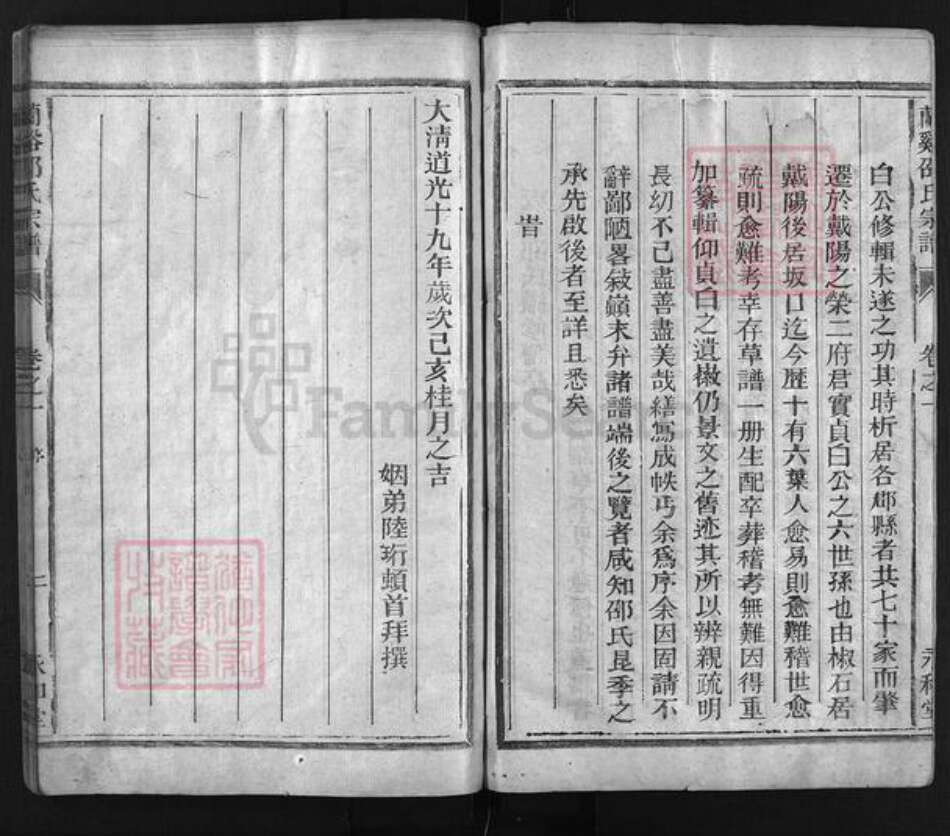 蘭谿邵氏宗譜 卷之一 永和堂
白公修輯未遂之功其時析居各郡縣者共七十家而肇
遷於戴陽之榮二府君實貞白公之六世孫也由椒石居
戴陽後居坂口迄今歷十有六葉人愈易則愈難稽世愈
疏則愈難考幸存草譜一册生配卒葬稽考無難因得重
加纂輯仰貞白之遺徽仍景文之舊迹其所以辨親疏明
長幼不已盡善盡美哉繕寫成帙丐余爲序余因固請不
辭鄙陋畧敍巔末弁諸譜端後之覽者咸知邵氏昆季之
承先啟後者至詳且悉矣
旹
大淸道光十九年歲次己亥桂月之吉
姻弟陸珩頓首拜撰
卷之一
FamilySearch